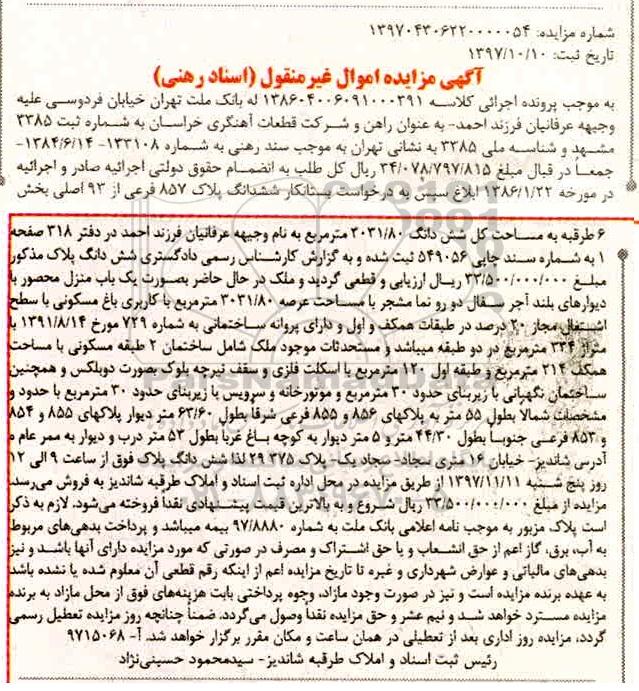 شماره مزایده: ۱۳۹۷۰۴۳۰۶۲۲۰۰۰۰۰۵۴
تاریخ ثبت: ۱۳۹۷/۱۰/۱۰
آگهی مزایده اموال غیرمنقول (اسناد رهنی)
به موجب پرونده اجرائی کلاسه ۱۳۸۶۰۴۰۰۶۰۹۱۰۰۰۳۹۱ له بانک ملت تهران خیابان فردوسی علیه
وجیهه عرفانیان فرزند احمد- به عنوان راهن و شرکت قطعات آهنگری خراسان به شماره ثبت ۳۳۸۵
مشهد و شناسه ملی ۳۳۸۵ به نشانی تهران به موجب سند رهنی به شماره ۱۳۳۱۰۸- ۱۳۸۴/۶/۱۴-
جمعاً در قبال مبلغ ۳۴/۰۷۸/۷۹۷/۸۱۵ ریال کل طلب به انضمام حقوق دولتی اجرائیه صادر و اجرائیه
در مورخه ۱۳۸۶/۱/۲۲ ابلاغ سپس به درخواست بستانکار ششدانگ پلاک ۸۵۷ فرعی از ۹۳ اصلی بخش
۶ طرقبه به مساحت کل شش دانگ ۳۰۳۱/۸۰ مترمربع به نام وجیهه عرفانیان فرزند احمد در دفتر ۳۱۸ صفحه
۱ به شماره سند چاپی ۵۴۹۰۵۶ ثبت شده و به گزارش کارشناس رسمی دادگستری شش دانگ پلاک مذکور
مبلغ ۳۳/۵۰۰/۰۰۰/۰۰۰ ریال ارزیابی و قطعی گردید و ملک در حال حاضر بصورت یک باب منزل محصور با
دیوارهای بلند آجر سفال دو رو نما مشجر با مساحت عرصه ۳۰۳۱/۸۰ مترمربع با کاربری باغ مسکونی با سطح
اشتغال مجاز ۲۰ درصد در طبقات همکف و اول و دارای پروانه ساختمانی به شماره ۷۲۹ مورخ ۱۳۹۱/۸/۱۴ با
متراژ ۳۳۴ مترمربع در دو طبقه میباشد و مستحدثات موجود ملک شامل ساختمان ۲ طبقه مسکونی با مساحت
همکف ۲۱۴ مترمربع و طبقه اول ۱۲۰ مترمربع با اسکلت فلزی و سقف تیرچه بلوک بصورت دوبلکس و همچنین
ساختمان نگهبانی با زیربنای حدود ۳۰ مترمربع و موتورخانه و سرویس با زیربنای حدود ۳۰ مترمربع با حدود و
مشخصات شمالا بطول ۵۵ متر به پلاکهای ۸۵۶ و ۸۵۵ فرعی شرقا بطول ۶۳/۶۰ متر دیوار پلاکهای ۸۵۵ و ۸۵۴
و ۸۵۳ فرعی جنوبا بطول ۴۴/۳۰ متر و ۵ متر دیوار به کوچه باغ غربا بطول ۵۳ متر درب و دیوار به ممر عام به
آدرس شاندیز- خیابان ۱۶ متری سجاد- سجاد یک- پلاک ۳۷۵ ۲۹ لذا شش دانگ پلاک فوق از ساعت ۹ الی ۱۲
روز پنج شنبه ۱۳۹۷/۱۱/۱۱ از طریق مزایده در محل اداره ثبت اسناد و املاک طرقبه شاندیز به فروش می‌رسد.
مزایده از مبلغ ۳۳/۵۰۰/۰۰۰/۰۰۰ ریال شروع و به بالاترین قیمت پیشنهادی نقداً فروخته می‌شود. لازم به ذکر
است پلاک مزبور به موجب نامه اعلامی بانک ملت به شماره ۹۷/۸۸۸۰ بیمه میباشد و پرداخت بدهی‌های مربوط
به آب، برق، گاز اعم از حق انشعاب و یا حق اشتراک و مصرف در صورتی که مورد مزایده دارای آنها باشد و نیز
بدهی‌های مالیاتی و عوارض شهرداری و غیره تا تاریخ مزایده اعم از اینکه رقم قطعی آن معلوم شده یا نشده باشد
به عهده برنده مزایده است و نیز در صورت وجود مازاد، وجوه پرداختی بابت هزینه‌های فوق از محل مازاد به برنده
مزایده مسترد خواهد شد و نیم عشر و حق مزایده نقداً وصول می‌گردد. ضمناً چنانچه روز مزایده تعطیل رسمی
گردد، مزایده روز اداری بعد از تعطیلی در همان ساعت و مکان مقرر برگزار خواهد شد. آ- ۹۷۱۵۰۶۸
رئیس ثبت اسناد و املاک طرقبه شاندیز- سیدمحمود حسینی‌نژاد